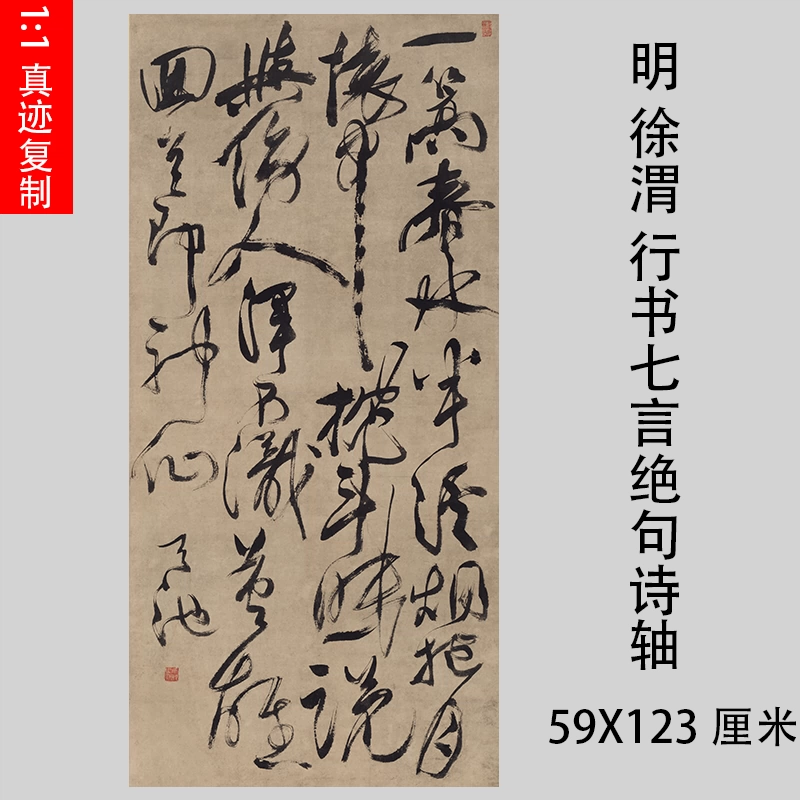 1:1 真迹复制
一篙春水半溪烟抱月
懷中枕斗眠說
與傍人渾不識英雄
回首即神仙
天池
明 徐渭 行书七言绝句诗轴
59X123 厘米